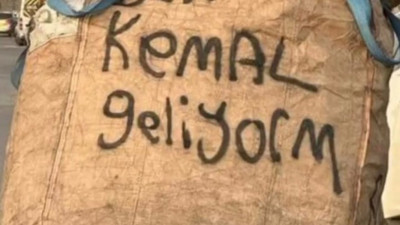 KEMAL
geliyorm